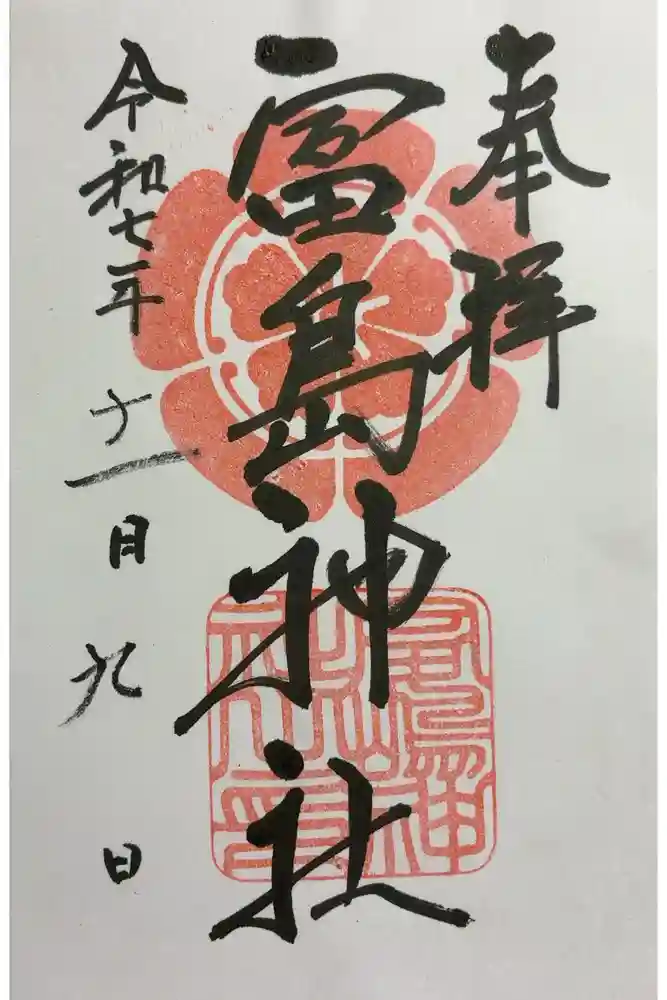 奉拝
冨島神社
令和七年十一月九日